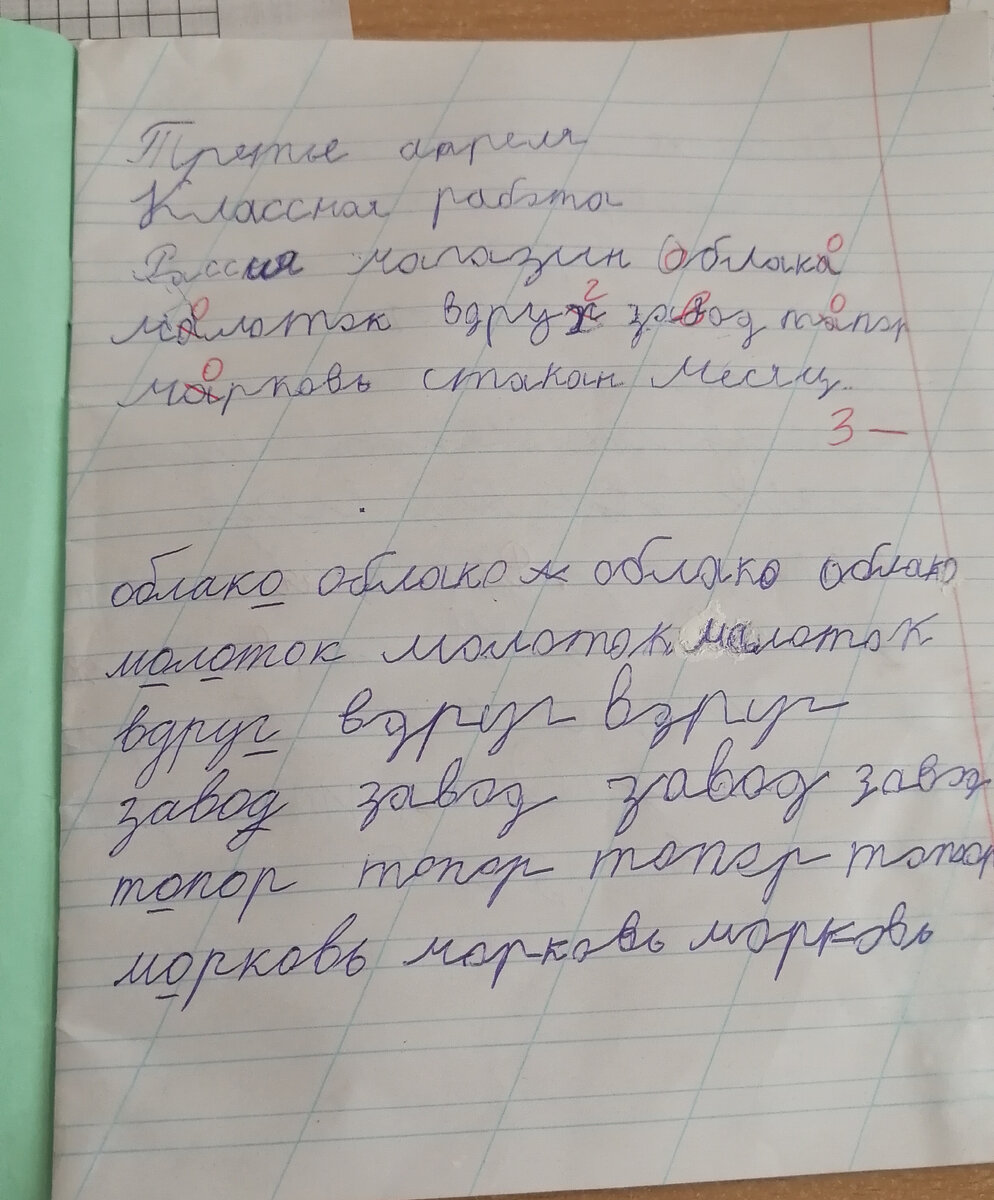 Третье апреля
Классная работа
Россия магазин облака
малоток вдрук завод тапор
марковь стакан месяц.
3 —
облако облако облако облако
молоток молоток малоток
вдруг вдруг вдруг
завод завод завод завод
топор топор топор топор
морковь морковь морковь